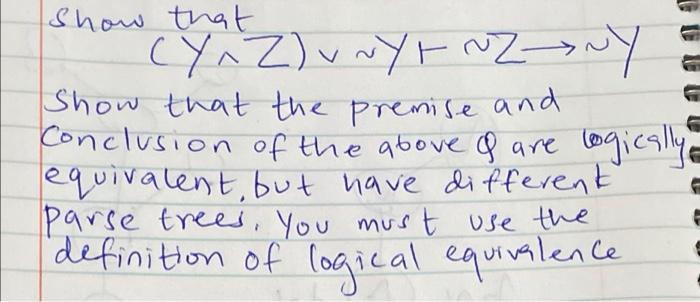 Show that
(Y∧Z) ∨ ~Y ⊢ ~Z → ~Y
Show that the premise and
Conclusion of the above Q are logically
equivalent, but have different
parse trees. You must use the
definition of logical equivalence